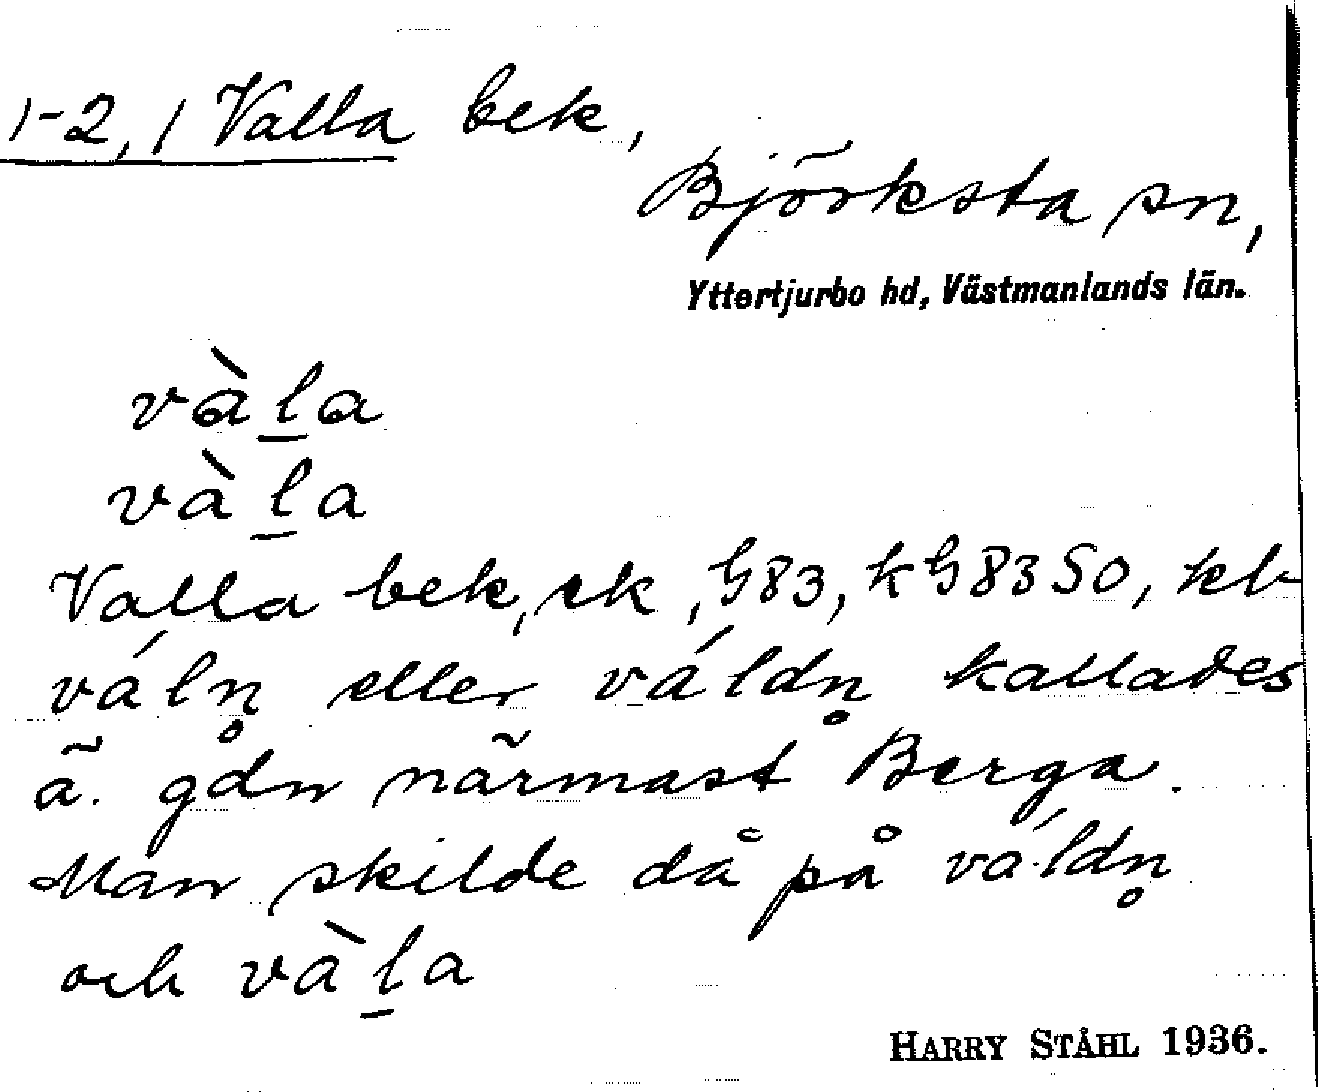 1-2, / Valla bek,
Björksta sn,
Yttertjurbo hd, Västmanlands län.
vàl̲a
vàl̲a
Valla bek, ek, G83, kG83SO, kb
váln̥ eller váldn̥ kallades
ä. gdn närmast Berga.
Man skilde då på váldn̥
och vàl̲a
HARRY STÅHL 1936.